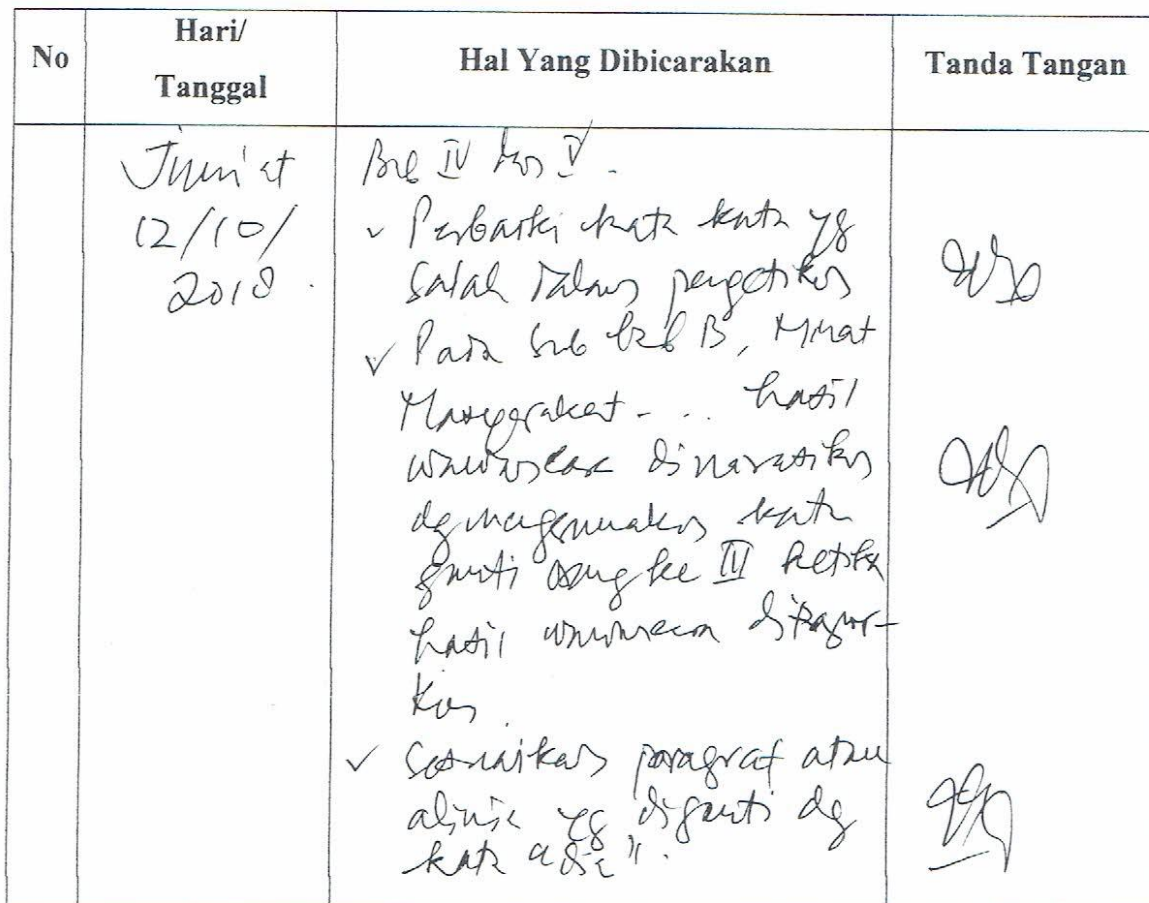 No
Hari/
Tanggal
Hal Yang Dibicarakan
Tanda Tangan
Jum'at
12/10/
2018.
Bab IV dan V.
✓ Perbaiki kata kata yg
salah dalam pengetikan
✓ Pada sub bab B, Minat
Masyarakat - ... hasil
wawancara dinarasikan
dg menggunakan kata
ganti orang ke III ketika
hasil wawancara dipapar-
kan.
✓ Sesuaikan paragraf atau
alinia yg diganti dg
kata "dia".